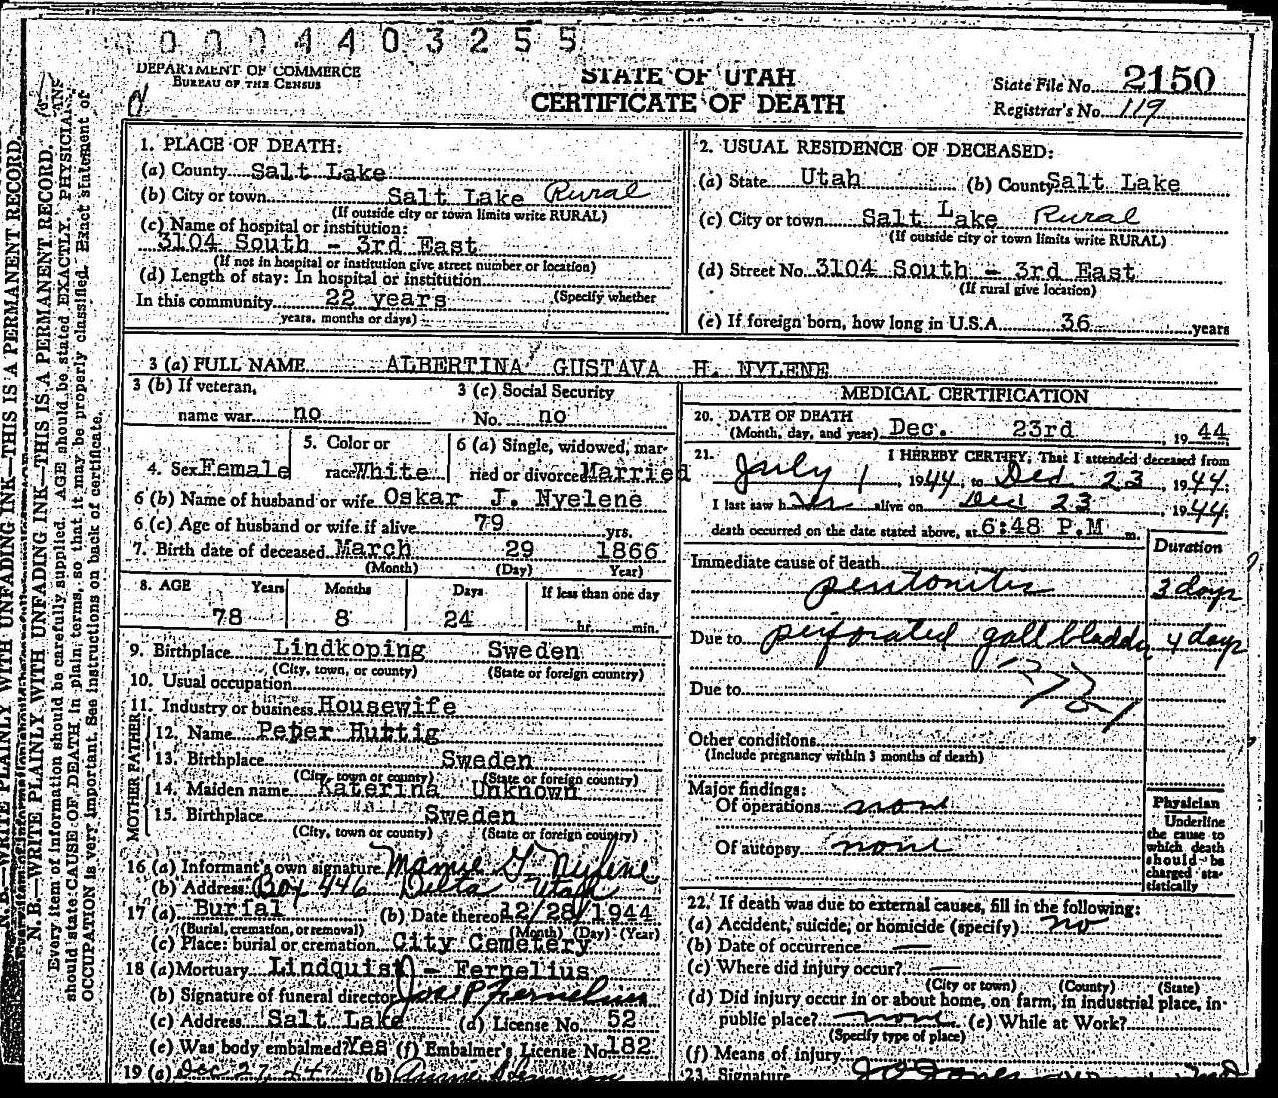 0 0 0 4 4 0 3 2 5 5
DEPARTMENT OF COMMERCE
BUREAU OF THE CENSUS
STATE OF UTAH
CERTIFICATE OF DEATH
State File No. 2150
Registrar's No. 119
N. B.—WRITE PLAINLY WITH UNFADING INK—THIS IS A PERMANENT RECORD.
Every item of information should be carefully supplied. AGE should be stated EXACTLY. PHYSICIANS
should state CAUSE OF DEATH in plain terms, so that it may be properly classified. Exact statement of
OCCUPATION is very important. See instructions on back of certificate.
1. PLACE OF DEATH:
(a) County Salt Lake
(b) City or town Salt Lake Rural
(If outside city or town limits write RURAL)
(c) Name of hospital or institution:
3104 South - 3rd East
(If not in hospital or institution give street number or location)
(d) Length of stay: In hospital or institution
In this community 22 years (Specify whether
years, months or days)
2. USUAL RESIDENCE OF DECEASED:
(a) State Utah (b) County Salt Lake
(c) City or town Salt Lake Rural
(If outside city or town limits write RURAL)
(d) Street No. 3104 South - 3rd East
(If rural give location)
(e) If foreign born, how long in U.S.A. 36 years
3 (a) FULL NAME ALBERTINA GUSTAVA H. NYLENE
3 (b) If veteran, 3 (c) Social Security
name war no No. no
4. Sex Female 5. Color or race White 6 (a) Single, widowed, married or divorced Married
6 (b) Name of husband or wife Oskar J. Nyelene
6 (c) Age of husband or wife if alive 79 yrs.
7. Birth date of deceased March 29 1866
(Month) (Day) Year)
8. AGE Years Months Days If less than one day
78 8 24 hr. min.
9. Birthplace Lindkoping Sweden
(City, town, or county) (State or foreign country)
10. Usual occupation
11. Industry or business Housewife
FATHER
12. Name Peter Huttig
13. Birthplace Sweden
(City, town or county) (State or foreign country)
MOTHER
14. Maiden name Katerina Unknown
15. Birthplace Sweden
(City, town or county) (State or foreign country)
16 (a) Informant's own signature Mamie G. Nylene
(b) Address Box 446 Delta Utah
17 (a) Burial (b) Date thereof 12/28/1944
(Burial, cremation, or removal) (Month) (Day) (Year)
(c) Place: burial or cremation City Cemetery
18 (a) Mortuary Lindquist - Fernelius
(b) Signature of funeral director Jos P Fernelius
(c) Address Salt Lake (d) License No. 52
(e) Was body embalmed? Yes (f) Embalmer's License No. 182
19 (a) Dec 27 44 (b)
MEDICAL CERTIFICATION
20. DATE OF DEATH
(Month, day, and year) Dec. 23rd, 1944
21. I HEREBY CERTIFY, That I attended deceased from
July 1, 1944, to Dec. 23, 1944.
I last saw her alive on Dec 23, 1944.
death occurred on the date stated above, at 6:48 P.M m.
Duration
Immediate cause of death
peritonitis 3 days
Due to perforated gall bladder 4 days
Due to
Other conditions
(Include pregnancy within 3 months of death)
Major findings:
Of operations none
Of autopsy none
Physician
Underline
the cause to
which death
should be
charged sta-
tistically
22. If death was due to external causes, fill in the following:
(a) Accident, suicide, or homicide (specify) no
(b) Date of occurrence —
(c) Where did injury occur? —
(City or town) (County) (State)
(d) Did injury occur in or about home, on farm, in industrial place, in
public place? none (e) While at Work?
(Specify type of place)
(f) Means of injury
23. Signature